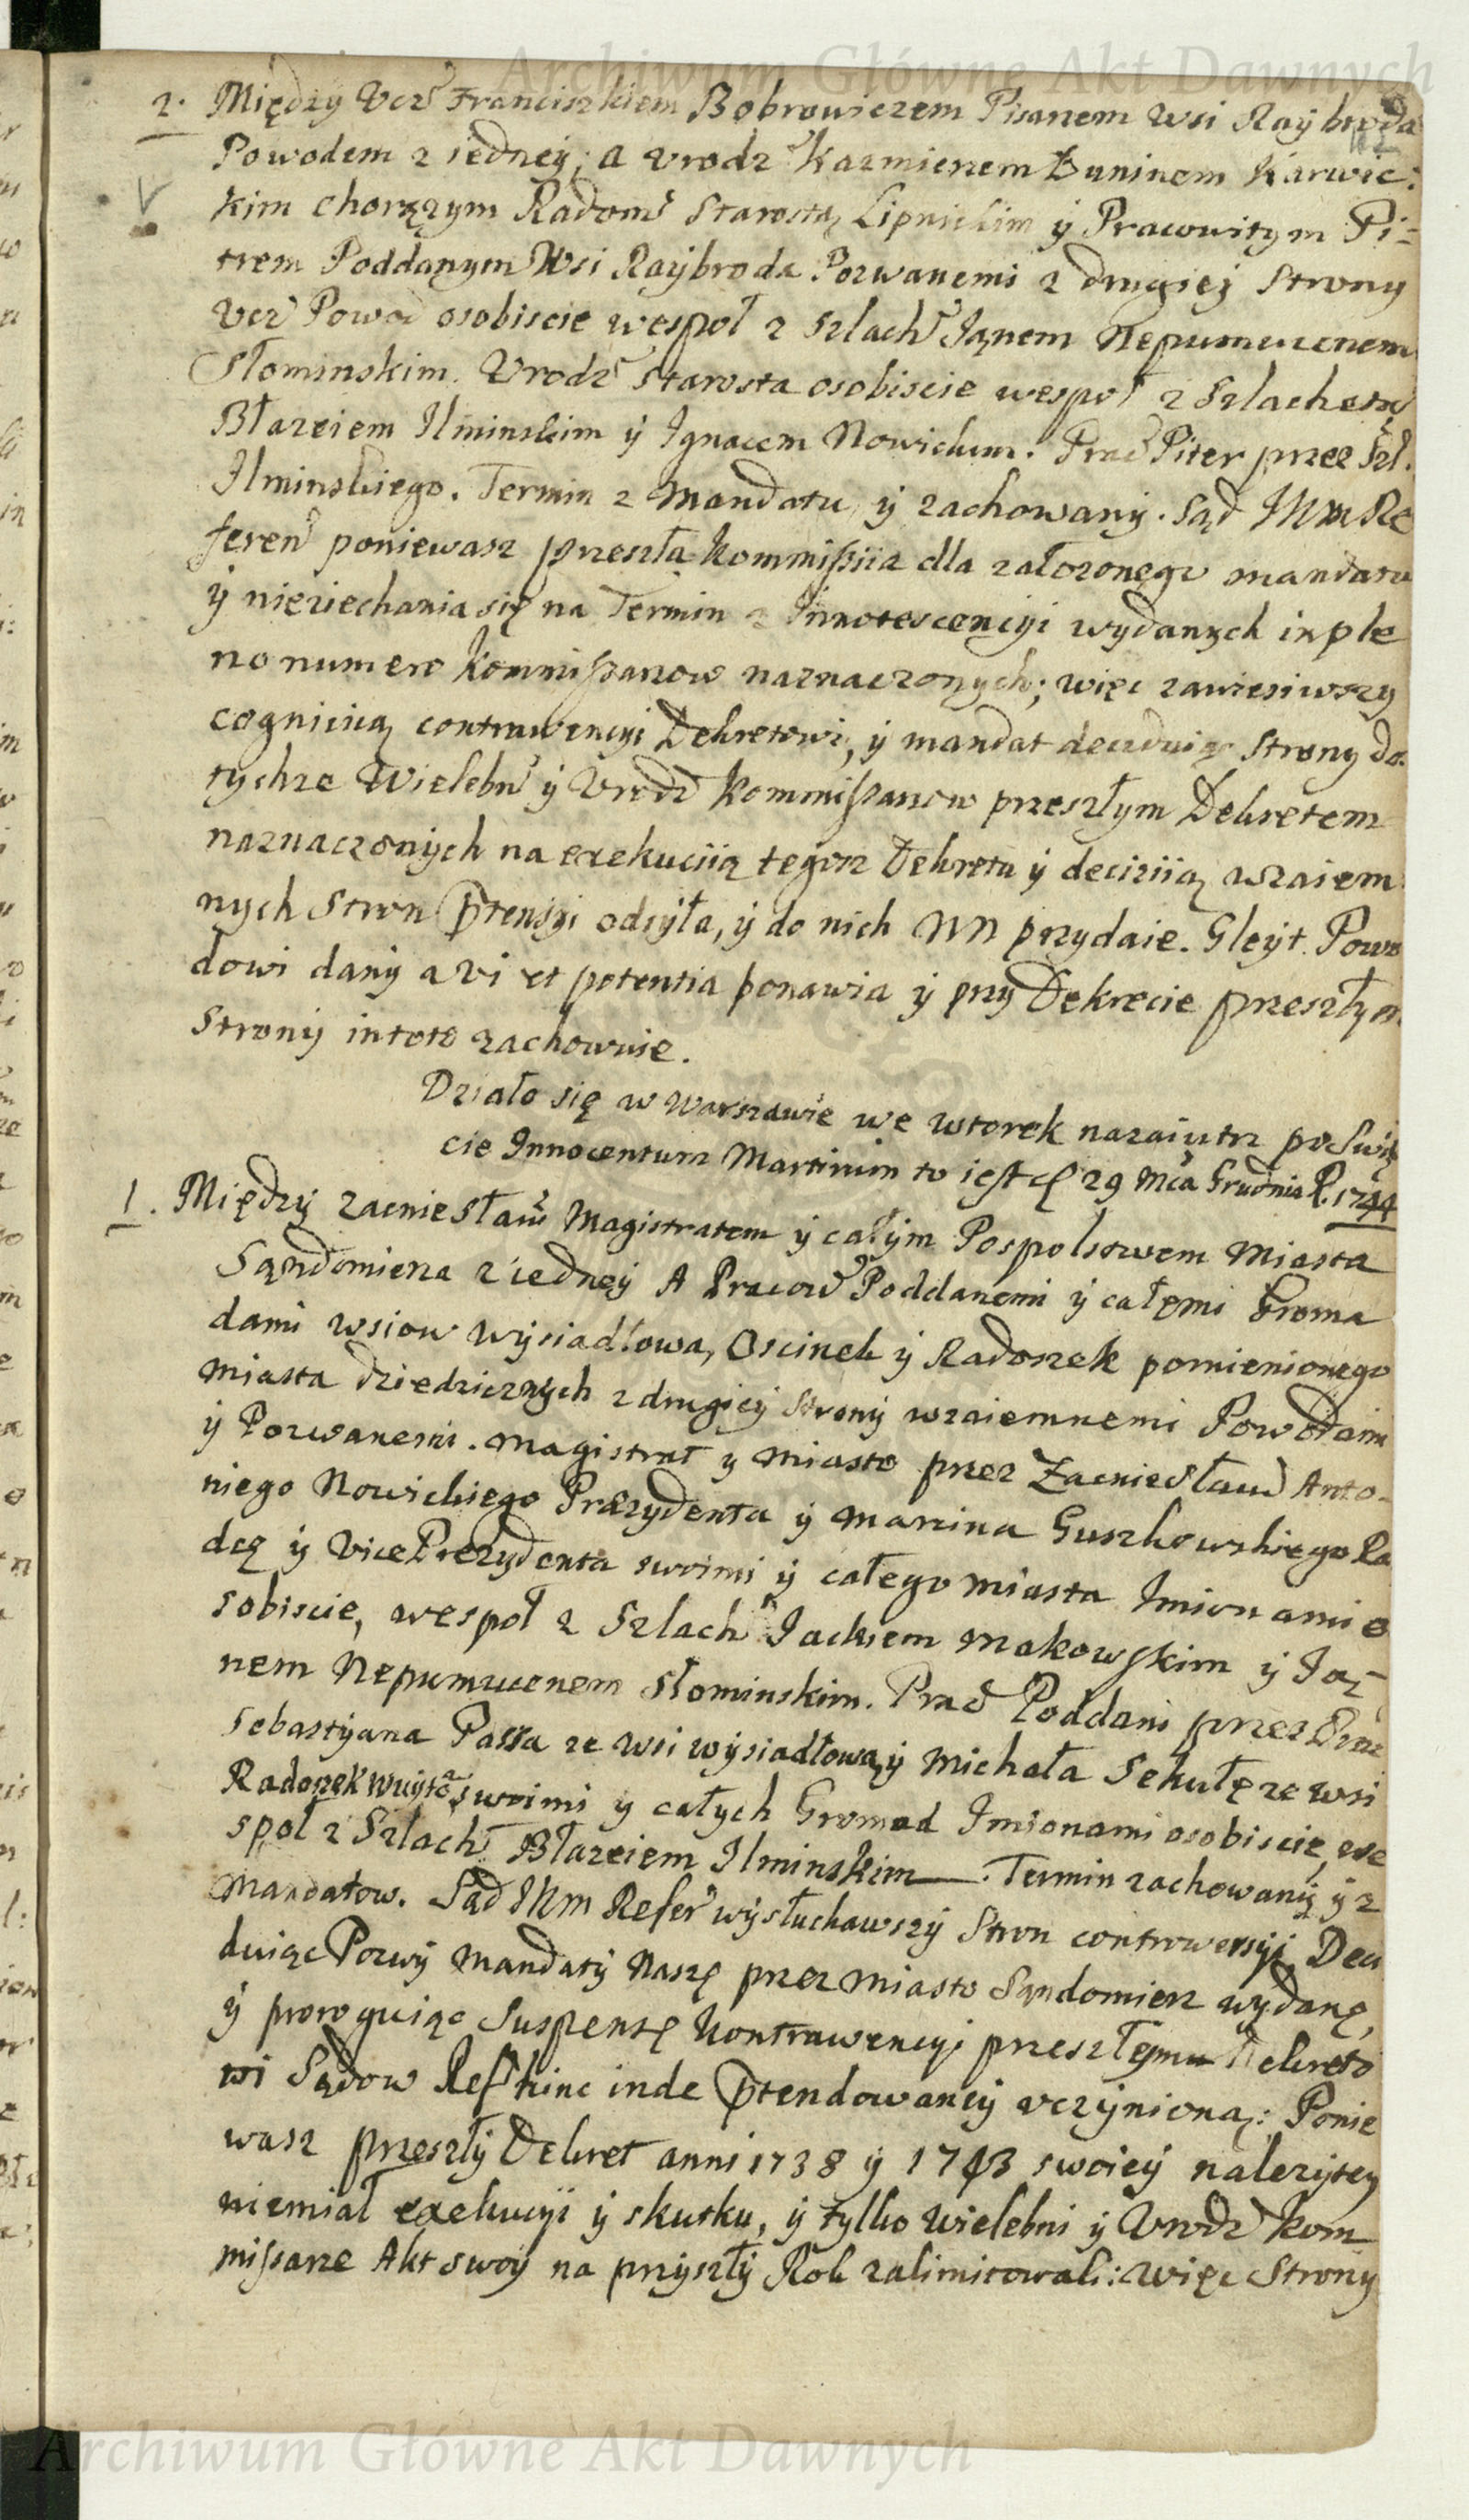 Archiwum Główne Akt Dawnych
2. Między Ucz Franciszkiem Bobrowiczem Pisarzem wsi Raybroda
Powodem z iedney; a Urodz Kazmierzem Duninem Karwic:
kim chorązym Radom Starostą Lipnickim ÿ Pracowitym Pi=
trem Poddanym Wsi Raÿbroda Pozwanemi z drugiey Strony
Ucz Powod osobiscie wespoł z Szlach Janem Nepumucenem
Słominskim. Urodz Starosta osobiscie wespoł z Szlachetą
Błazeiem Ilminskim ÿ Ignacem Nowickim. Prac Piter przez Szl.
Ilminskiego. Termin z Mandatu ÿ zachowanÿ. Sąd JKM Re
feren poniewasz przeszła Kommissiia dla załozonego mandatu
ÿ nieziechania się na Termin z Innotescencÿi wydanych in ple
no numero Kommissarzow naznaczonych; więc zawiesiwszy
cogniciią contrawencyi Dekretowi, ÿ mandat deciduiąc Strony do
tychze Wielebn ÿ Urodz Kommissarzow przeszłym Dekretem
naznaczonÿch na exekuciią tegosz Dekretu ÿ deciziią wzaiem
nych Stron ptensyi odsÿła, ÿ do nich NN przydaie. Gleÿt Powo
dowi danÿ a vi et potentia ponawia ÿ przy Dekrecie przeszłym
Stronÿ in toto zachowuie.
Działo się w Warszawie we wtorek nazaiutrz po Swię
cie Innocentum Martirum to iest d 29 Mca Grudnia R. 1744
1. Międzÿ zacnie Sław Magistratem ÿ całÿm Pospolstwem Miasta
Sąndomierza z iedneÿ A Pracow Poddanemi ÿ całemi Groma
dami wsiow Wÿsiadłowa, Oscinek ÿ Radoszek pomienionego
Miasta dziedzicznych z drugieÿ Stronÿ wzaiemnemi Powodami
ÿ Pozwanemi. Magistrat y Miasto przez Zacnie Sław Anto-
niego Nowickiego Prezydenta ÿ Marcina Guszkowskiego Ra
dcę ÿ Vice Prezydenta swoimi ÿ całego miasta Imionami o
sobiscie, wespoł z Szlach Jackiem Makowskim ÿ Ja=
nem Nepumucenem Słominskim. Prac Poddani przez Prac
Sebastÿana Passa ze Wsi wÿsiadłowa ÿ Michała Sekułę ze wsi
Radoszek Wuÿtow swoimi y całych Gromad Imionami osobiscie, we
społ z Szlach Błazeiem Ilminskim. Termin zachowanÿ ÿ z
Mandatow. Sąd JKM Refer wÿsłuchawszÿ Stron controwersyi, Deci
duiąc Pozwÿ Mandatÿ Naszę przez Miasto Sąndomierz wydanę,
ÿ proroguiąc Suspensę Kontrawencyi przeszłemu Dekreto
wi Sądow Ref hinc inde ptendowaneÿ uczÿnioną: Ponie
wasz przeszłÿ Dekret anni 1738 ÿ 1743 swoieÿ nalezÿtey
niemiał exekucyi ÿ skutku, ÿ tylko Wielebni ÿ Urodz Kom
missarze Akt swoÿ na przÿszłÿ Rok zalimitowali: więc Strony
Archiwum Główne Akt Dawnych